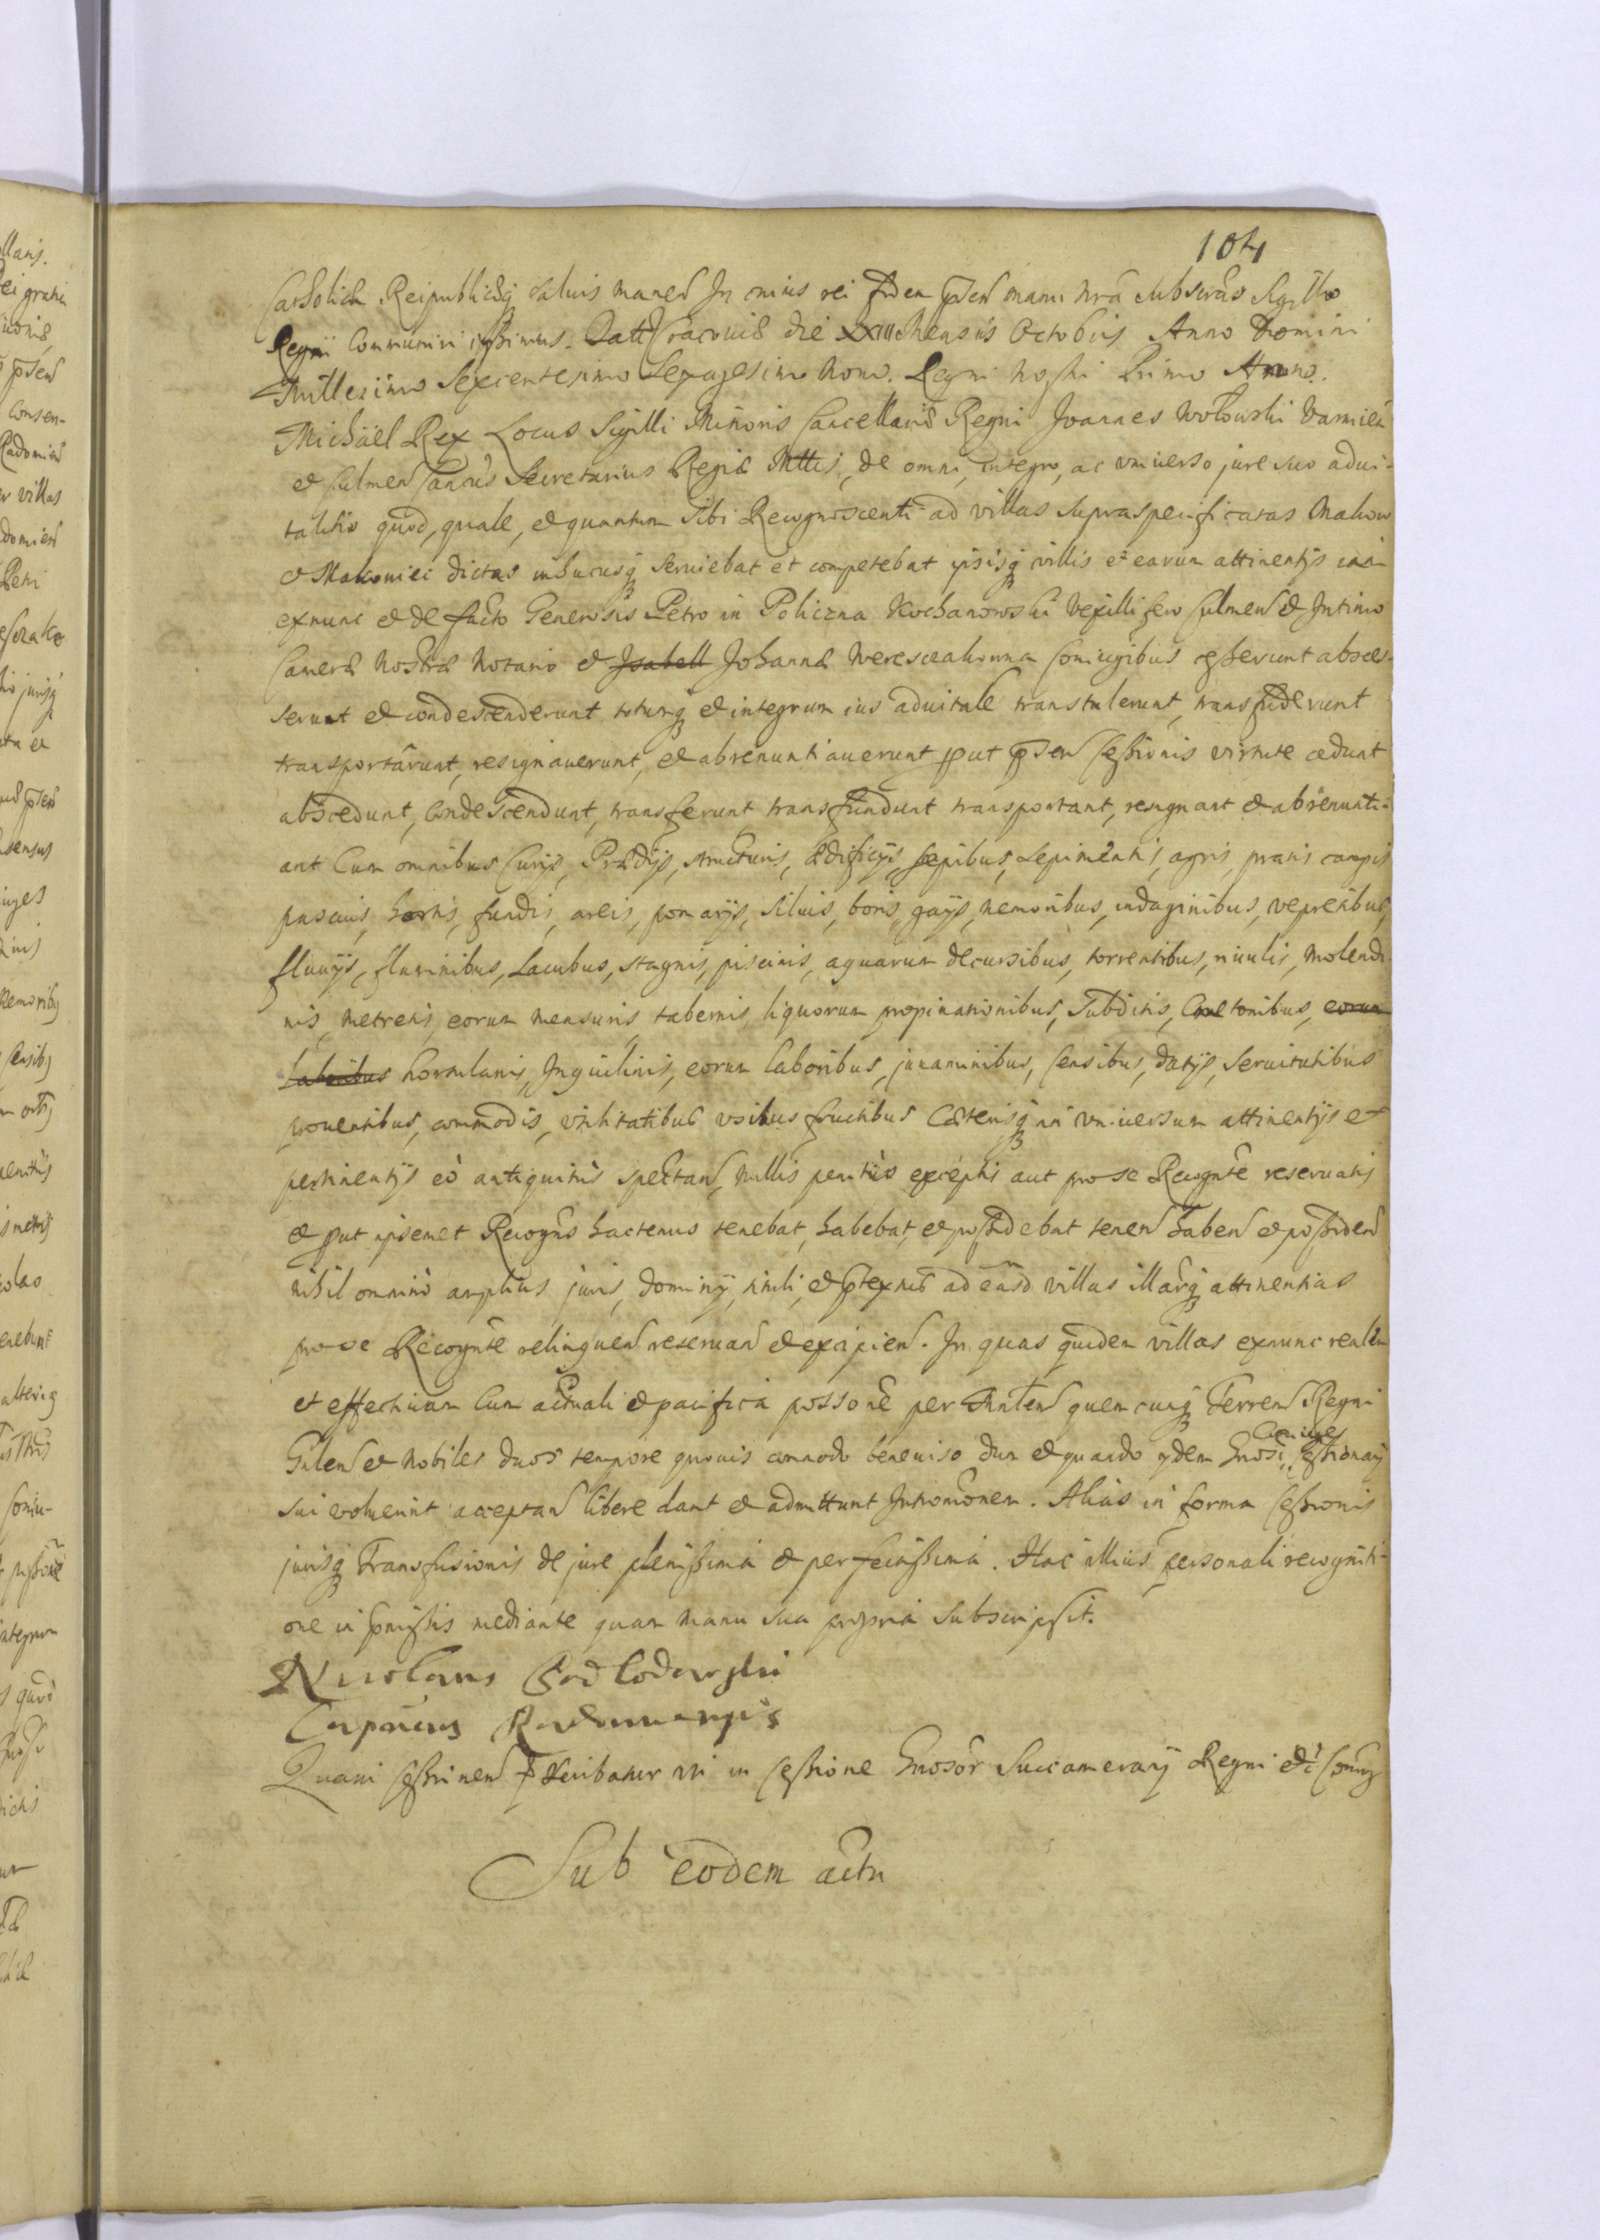 104
Catholicæ Reipublicæq saluis manen In cuius rei fidem pñten manu nrã subscrãs Sigillo
Regni communiri iussimus. Datt Cracouiæ die XXIII Mensis Octobris Anno Domini
Millesimo Sexcentesimo Sexagesimo Nono. Regni Nostri Primo Anno.
Michaël Rex Locus Sigilli Minoris Cancellariæ Regni Joannes Wolowski Varmien
et Culmen Cancus Secretarius Regiæ Mttis, de omni, integro, ac vniuerso jure suo adui-
talitio quod, quale, et quantum sibi Recognoscenti ad villas supraspecificatas Makow
et Makowiec dictas inhucusq seruiebat et competebat ipsisq villis et earum attinentijs iam
exnunc et de facto Generosis Petro in Policzna Kochanowski Vexillifero Culmen et Intimo
Cameræ Nostræ Notario et Isabell Johannæ Wereszczakowna Coniugibus cesserunt absces-
serunt et condescenderunt totumq et integrum ius aduitale transtulerunt, transfuderunt
transportârunt, resignauerunt, et abrenuntiauerunt put pñten cessionis virtute cedunt
abscedunt, condescendunt, transferunt transfundunt transportant, resignant et abrenunti-
ant Cum omnibus Curijs, Prædijs, structuris, ædificijs, sæpibus, sepimentis, agris, pratis campis
pascuis, hortis, fundis, areis, pomarijs, siluis, boris, gajis, nemoribus, indaginibus, vepretibus,
fluuijs, fluminibus, Lacubus, stagnis, piscinis, aquarum decursibus, torrentibus, riuulis, Molendi-
nis, metretis, eorum mensuris tabernis, liquorum propinationibus, Subditis, Cmetonibus, eorum
laboribus hortulanis, Inquilinis, eorum laboribus, juuaminibus, censibus, datijs, seruitutibus
prouentibus, commodis, vtilitatibus vsibus fructibus Cæterisq in vniuersum attinentijs et
pertinentijs eò antiquitus spectan, nullis penitus exceptis aut pro se Recognte reseruatis
et put ipsemet Recogns hactenus tenebat, habebat, et possidebat tenen haben et possiden
nihil omninò amplius juris, dominij, tituli, et ptextus ad easd villas illarq attinentias
pro se Recognte relinquen reseruan et excipien. In quas quidem villas exnunc realem
et effectiuam Cum actuali et pacifica possone per Minlen quemcunq Terren Regni
Gnlen et Nobiles duos tempore quouis commodo beneuiso dum et quando ijdem Gnosi Coniuges Cessionarij
sui voluerint acceptan libere dant et admittunt Intromonem. Alias in forma Cessionis
jurisq Transfusionis de jure plenissima et perfectissima. Hac illius personali recogniti-
one in pmissis mediante quam manu sua propria subscripsit.
Nicolaus Podlodowski
Capneus Radomiensis
Quam Cessionem pscribatur vti in Cessione Gnosor Succamerarij Regni etc Coniug
Sub eodem actu